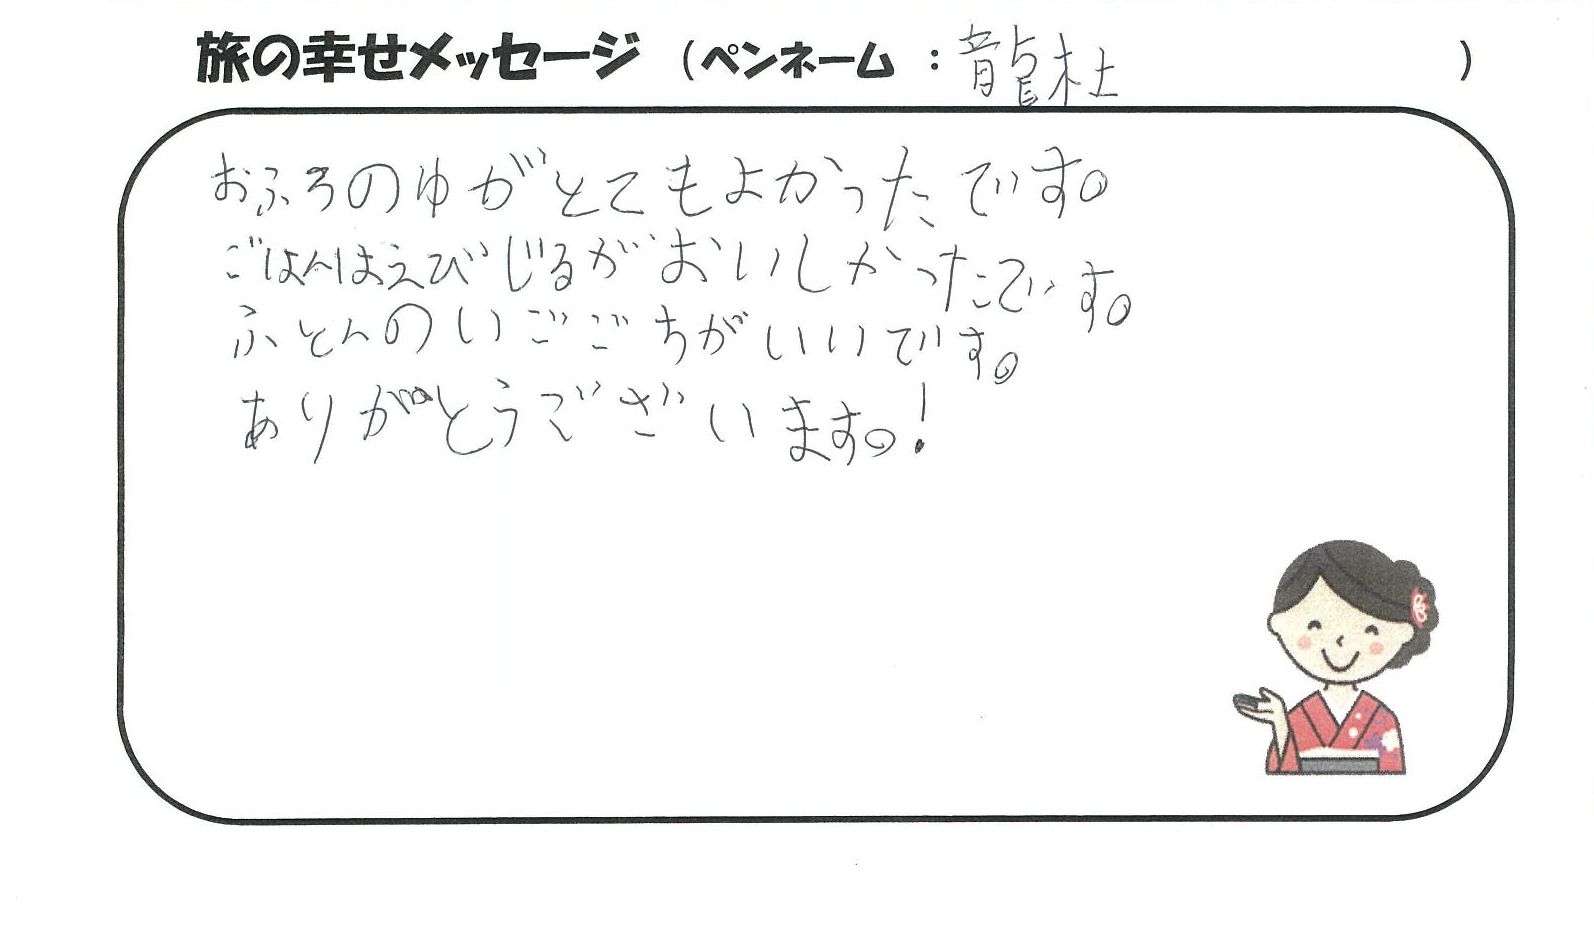 旅の幸せメッセージ (ペンネーム : 龍杜 )
おふろのゆがとてもよかったです。
ごはんはえびじるがおいしかったです。
ふとんのいごごちがいいです。
ありがとうございます。!